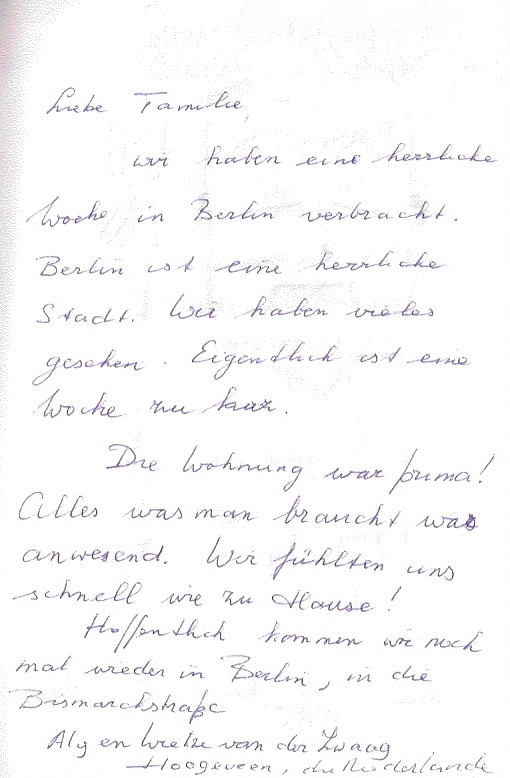 Liebe Familie,
wir haben eine herrliche
Woche in Berlin verbracht.
Berlin ist eine herrliche
Stadt. Wir haben vieles
gesehen. Eigentlich ist eine
Woche zu kurz.
Die Wohnung war prima!
Alles was man braucht was
anwesend. Wir fühlten uns
schnell wie zu Hause!
Hoffentlich kommen wir noch
mal wieder in Berlin, in die
Bismarckstraße
Aly en Wietze van der Zwaag
Hoogeveen, die Niederlande